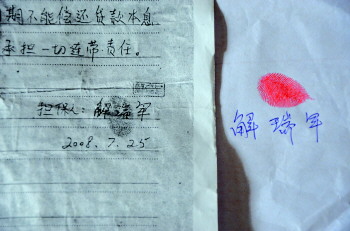 期不能偿还贷款本息
承担一切连带责任。
担保人：解瑞军
2008.7.25
解瑞军